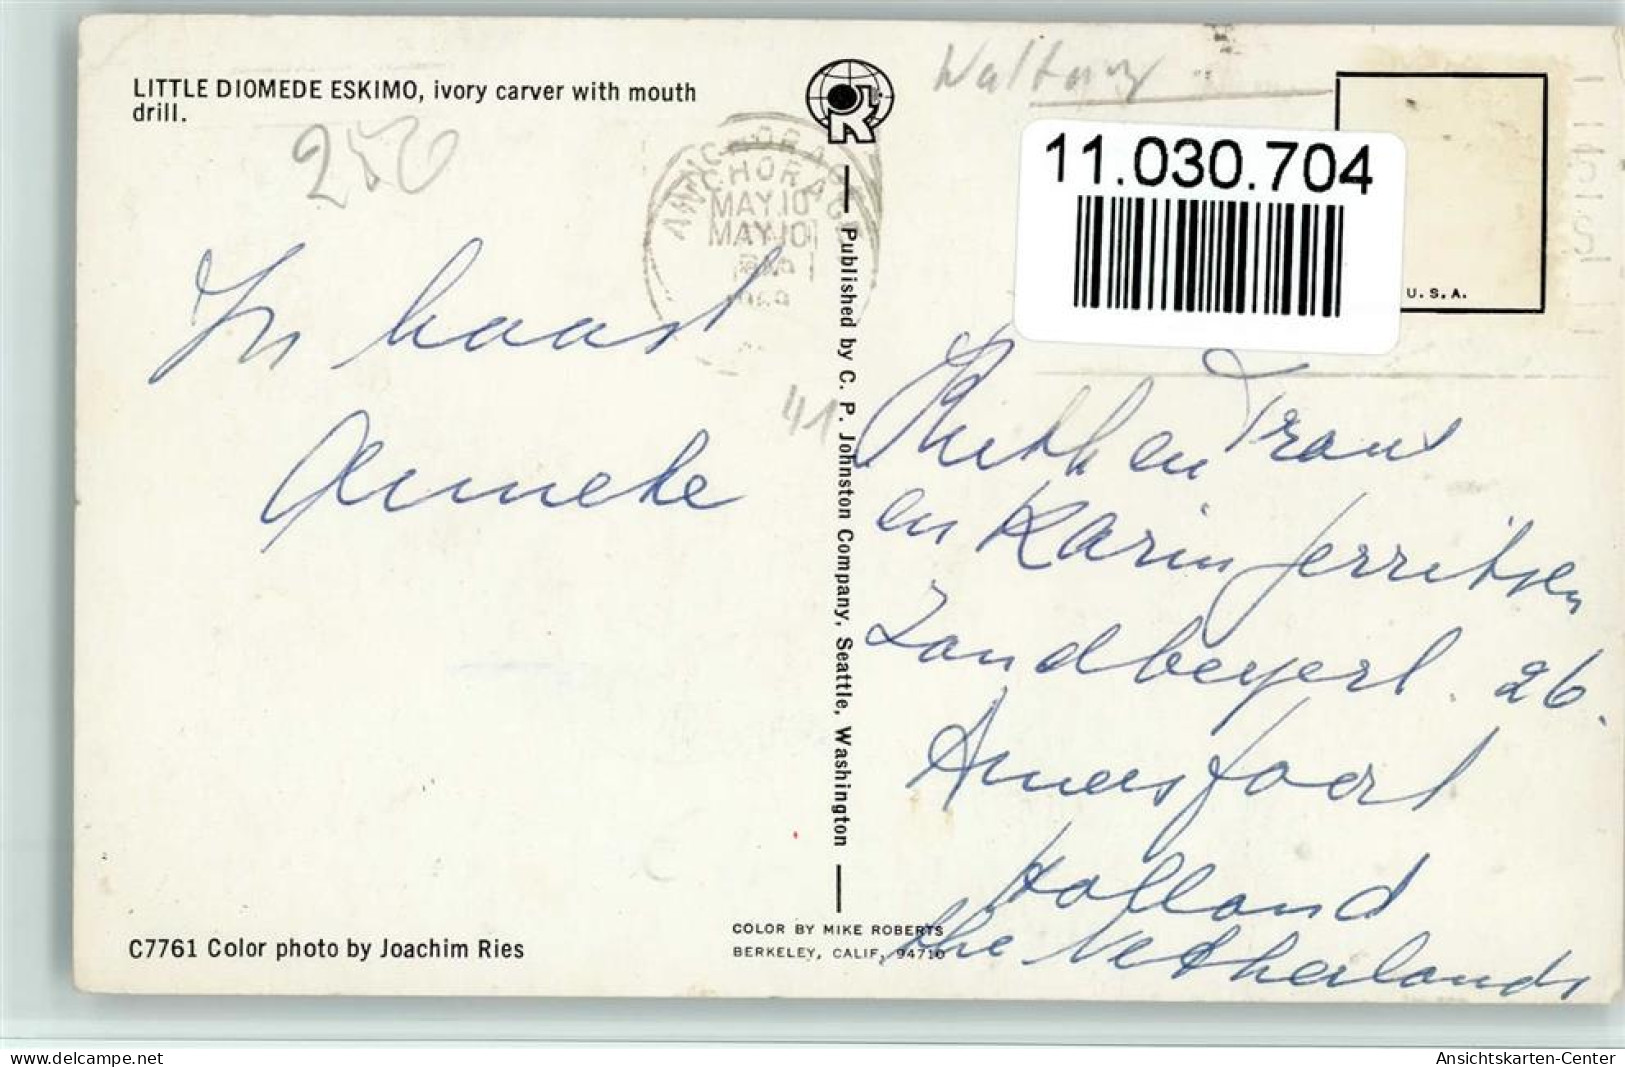 LITTLE DIOMEDE ESKIMO, ivory carver with mouth
drill.
250
In haast
Anneke
C7761 Color photo by Joachim Ries
ANCHORAGE
MAY 10
MAY 10
41
Published by C. P. Johnston Company, Seattle, Washington
COLOR BY MIKE ROBERTS
BERKELEY, CALIF. 94710
11.030.704
U.S.A.
Ruth en Frans
en Karin Gerritsen
Zandbergerl. 26.
Amersfoort
Holland
the Netherlands
www.delcampe.net
Ansichtskarten-Center